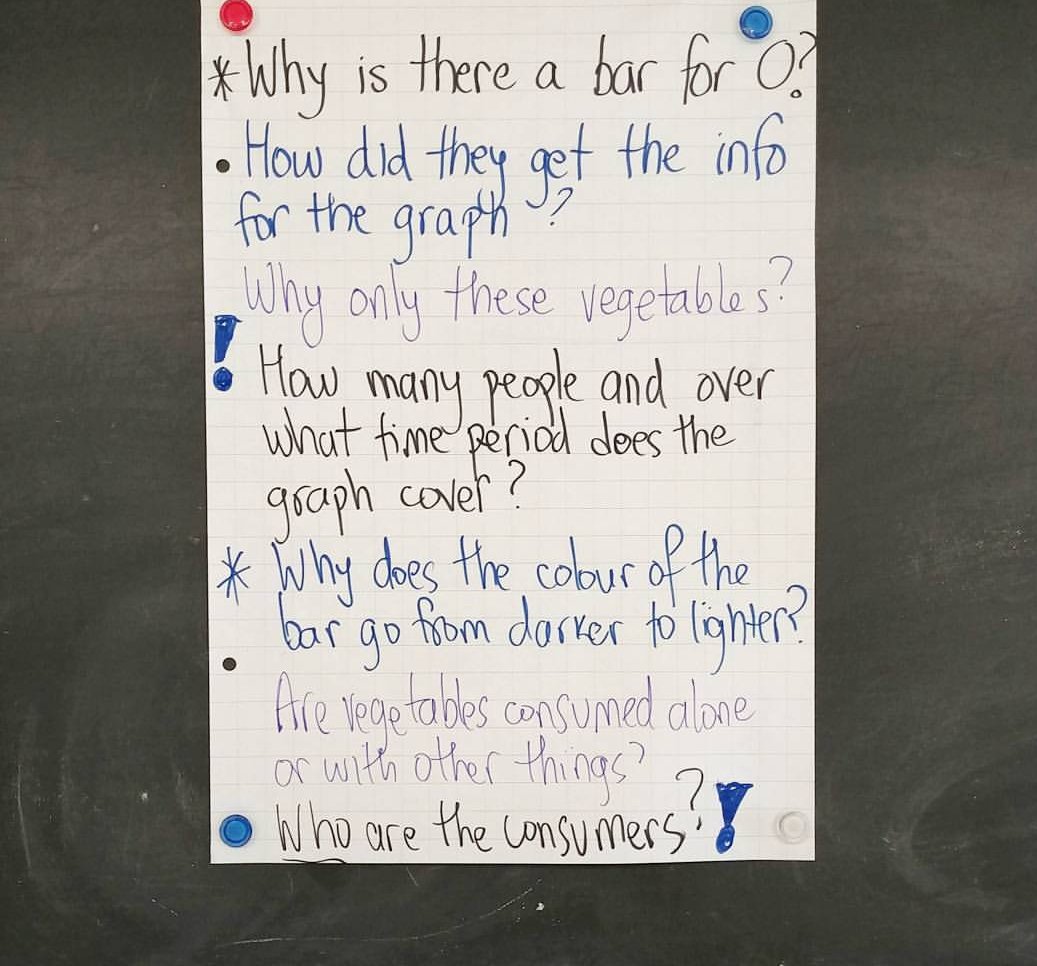 * Why is there a bar for 0?
• How did they get the info
for the graph?
Why only these vegetables?
! How many people and over
what time period does the
graph cover?
* Why does the colour of the
bar go from darker to lighter?
• Are vegetables consumed alone
or with other things?
Who are the consumers? !